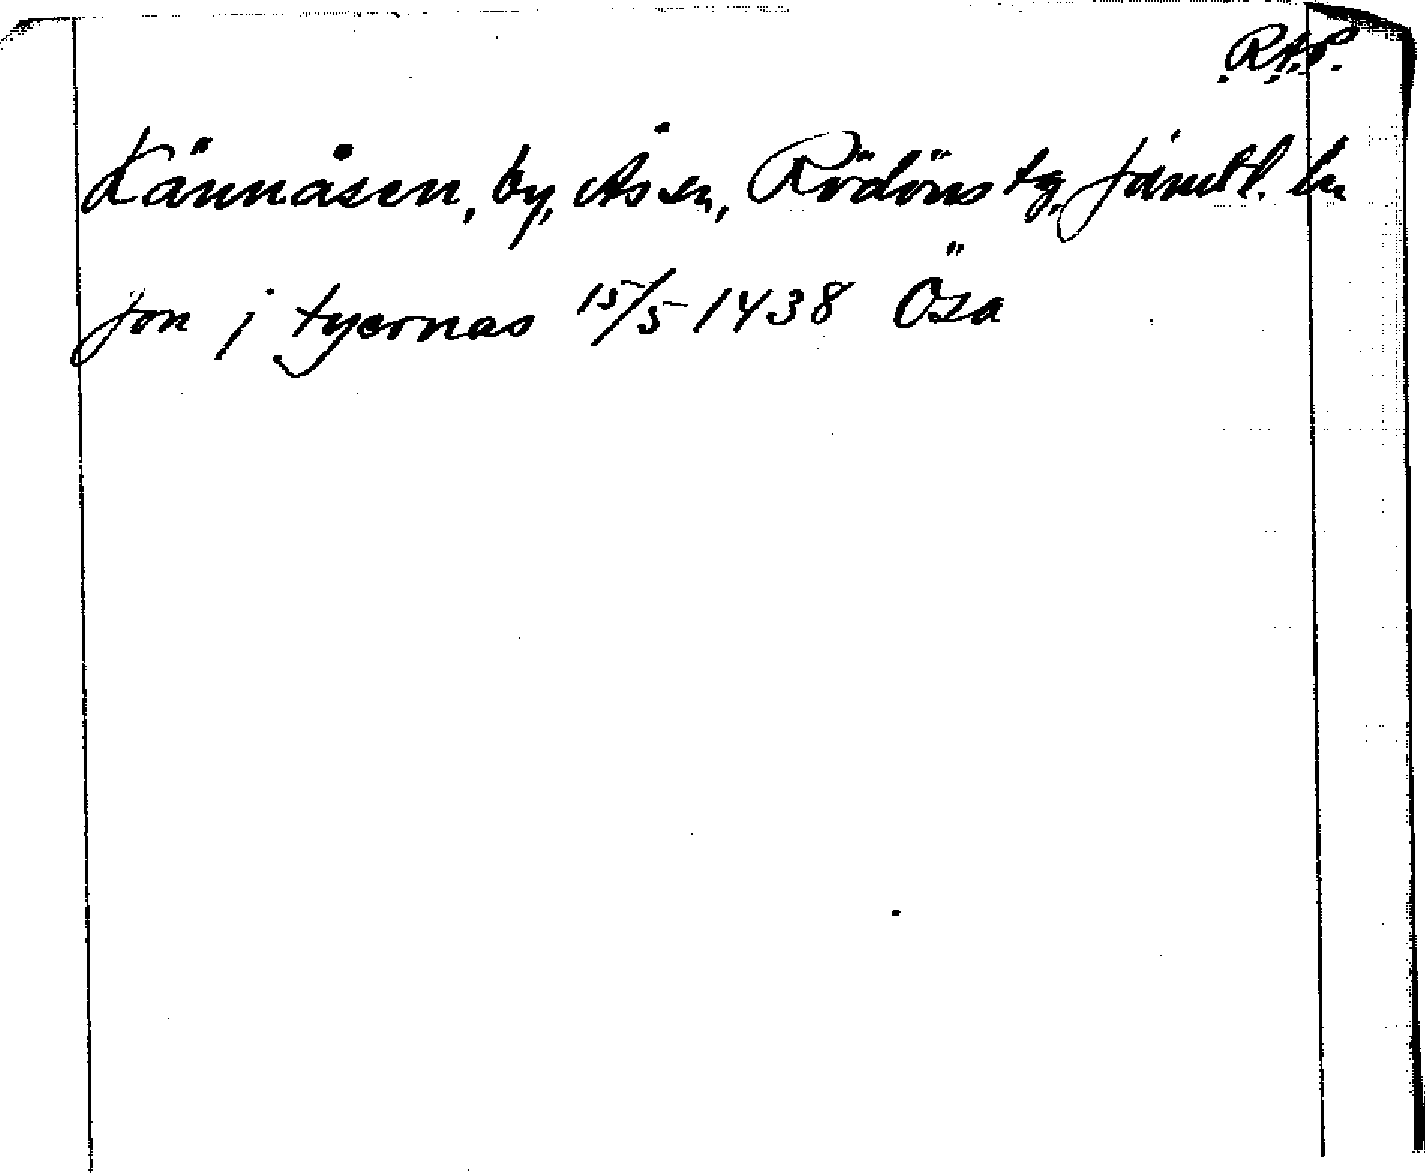 R.A.P.
Kännåsen, by, Ås sn, Rödöns tg, Jämtl. ln
Jon i tyernas 15/5 1438 Ösa